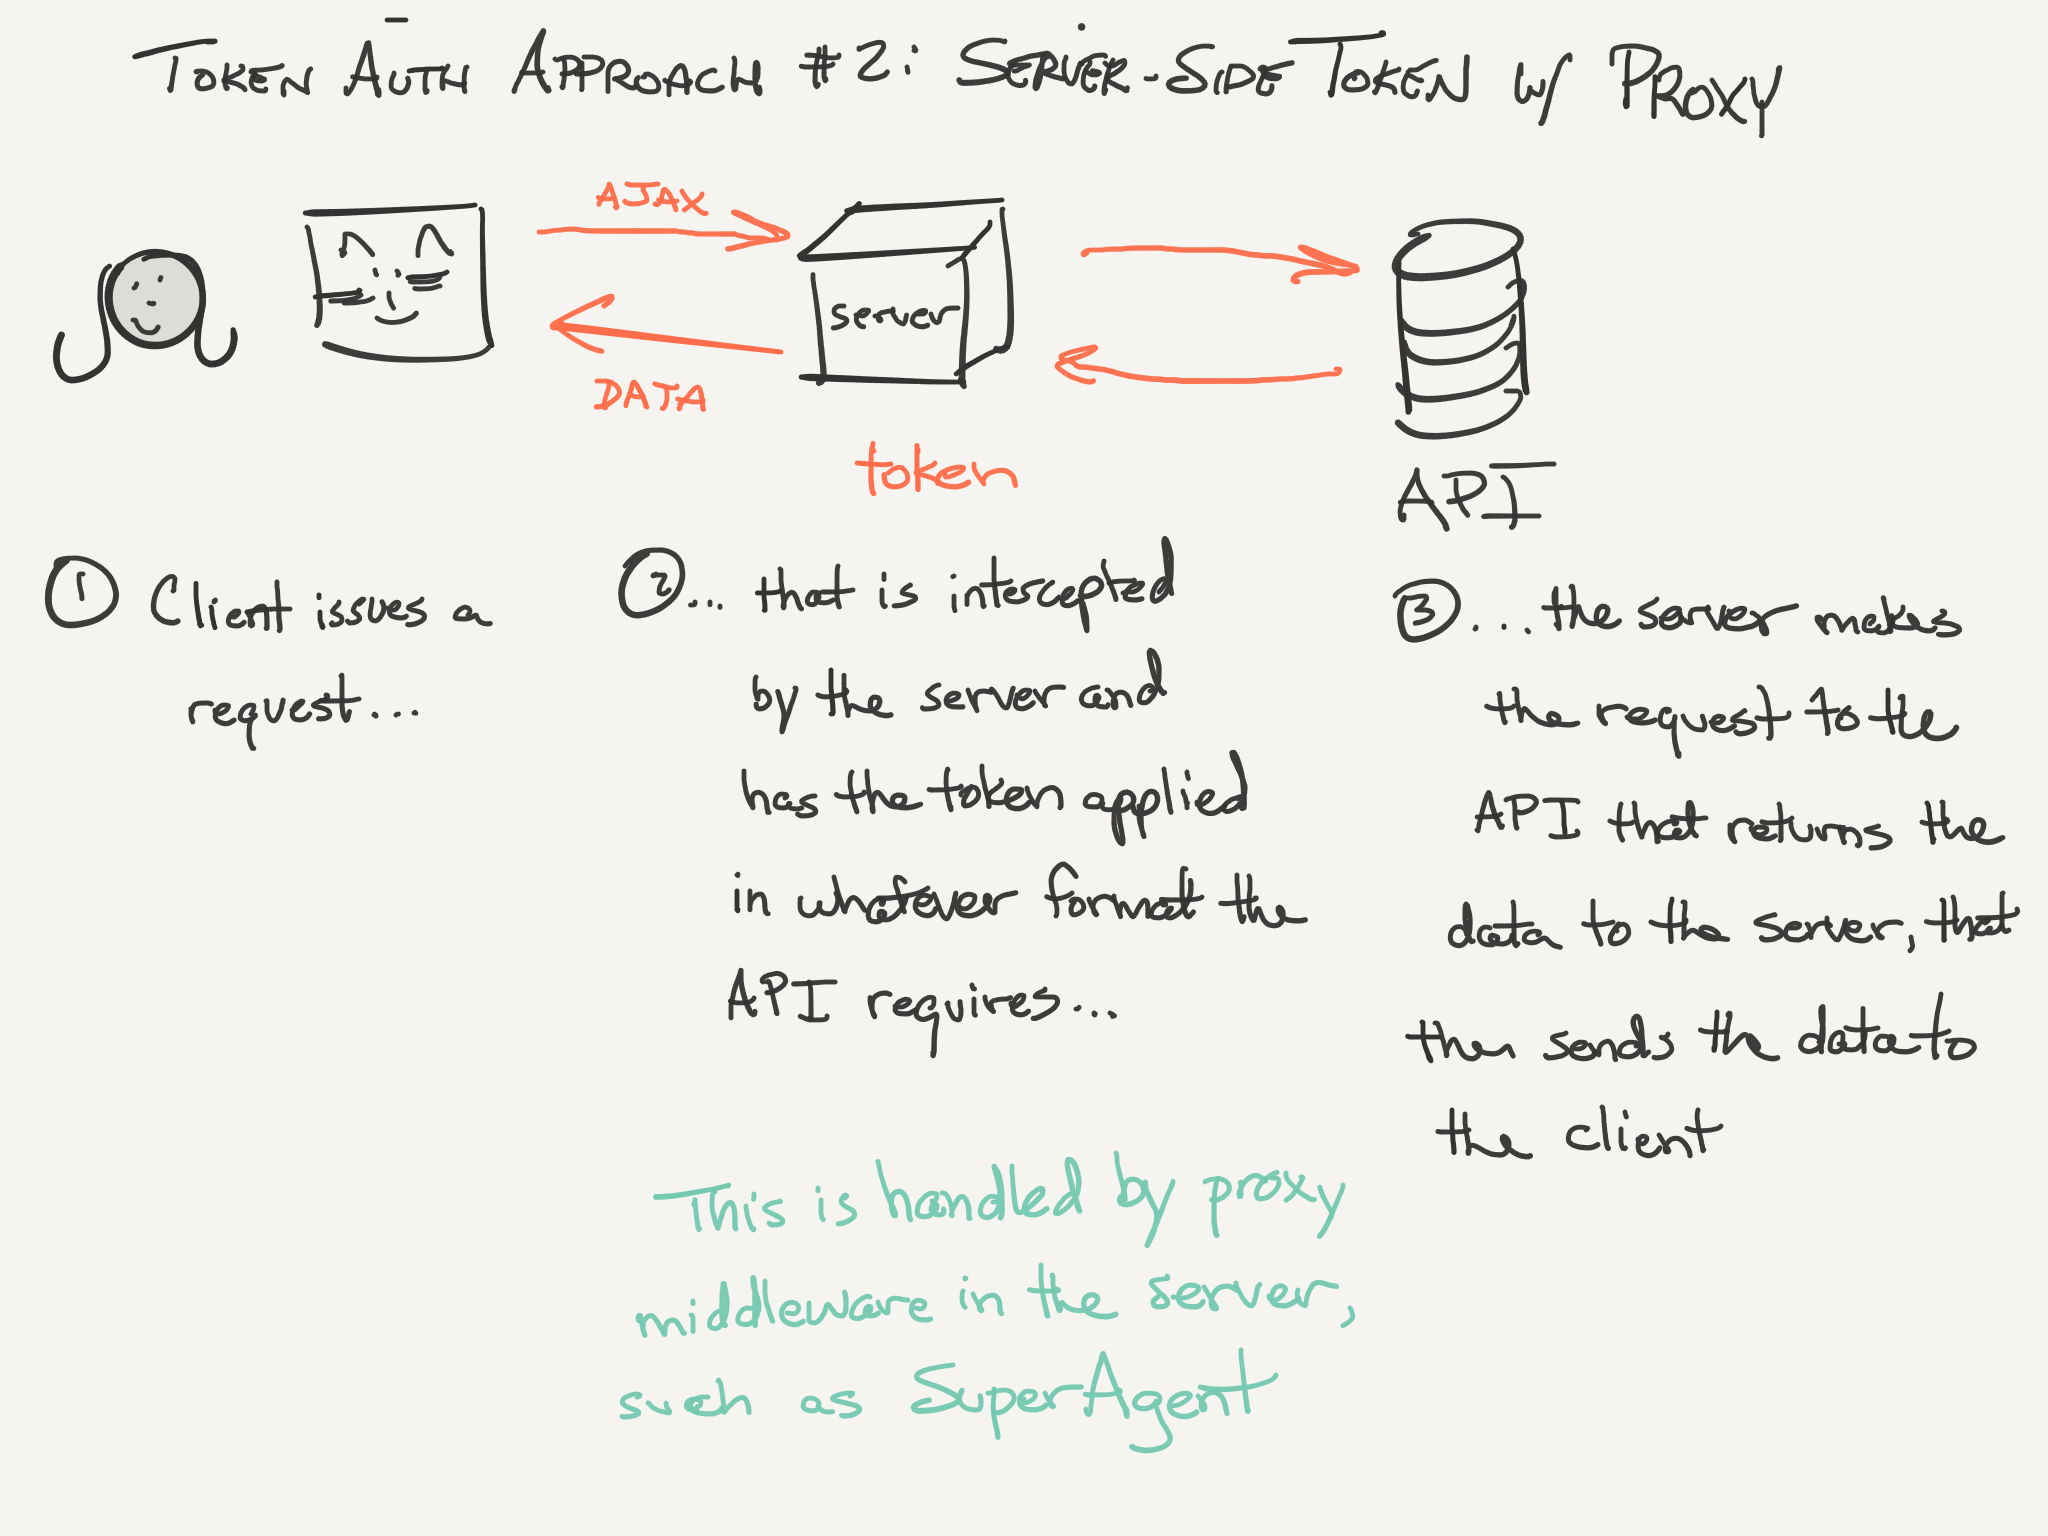 TOKEN AUTH APPROACH #2: SERVER-SIDE TOKEN W/ PROXY
AJAX
server
DATA
token
API
1 Client issues a
request...
2 ... that is intercepted
by the server and
has the token applied
in whatever format the
API requires...
3 ... the server makes
the request to the
API that returns the
data to the server, that
then sends the data to
the client
This is handled by proxy
middleware in the server,
such as SuperAgent